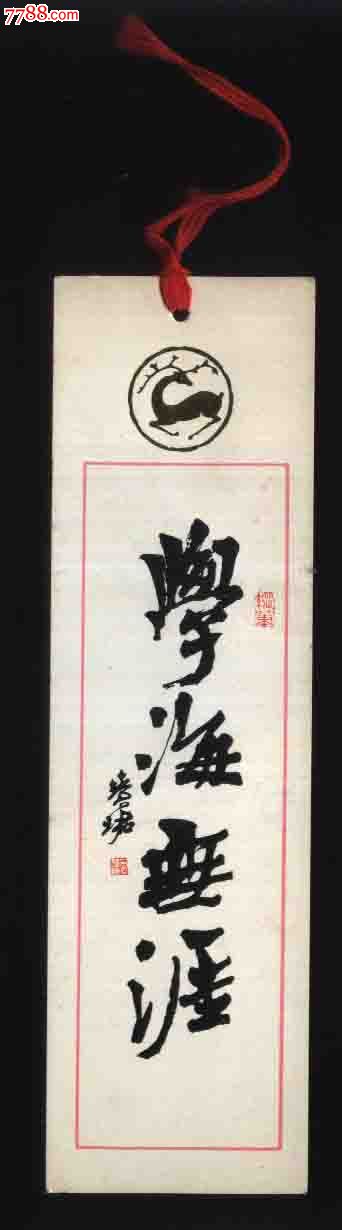 7788.com
學海無涯